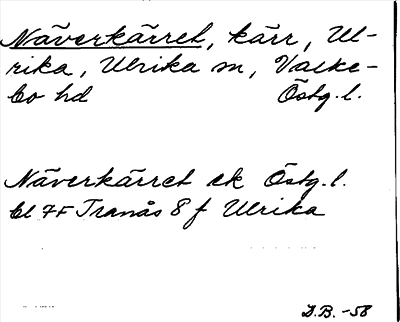 Näverkärret, kärr, Ul-
rika, Ulrika sn, Valke-
bo hd Östg. l.
Näverkärret ek Östg. l.
bl 7F Tranås 8 f Ulrika
D.B. -58